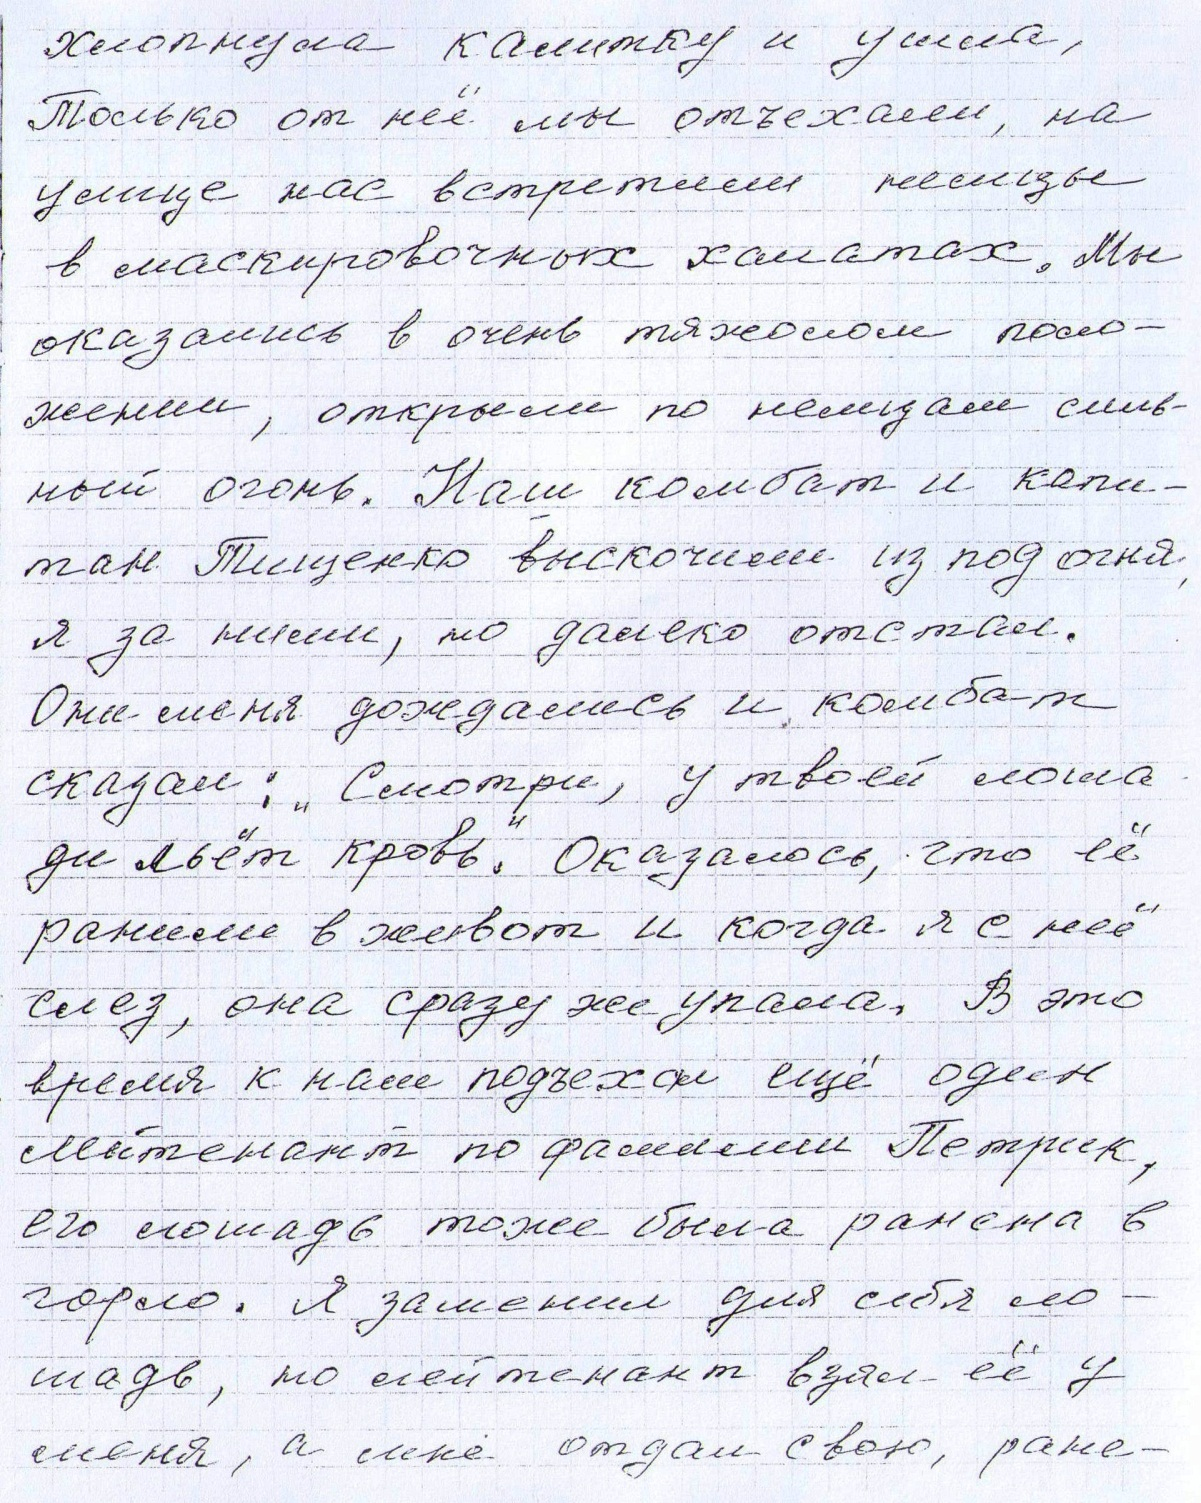 хлопнула калитку и ушла,
Только от неё мы отъехали, на
улице нас встретили немцы
в маскировочных халатах. Мы
оказались в очень тяжолом поло-
жении, открыли по немцам силь-
ный огонь. Наш комбат и капи-
тан Тищенко выскочили из под огня,
я за ними, но далеко отстал.
Они меня дождались и комбат
сказал: „Смотри, у твоей лоша
ди льёт кровь." Оказалось, что её
ранили в живот и когда я с неё
слез, она сразу же упала. В это
время к нам подъехал ещё один
лейтенант по фамилии Петрик,
его лошадь тоже была ранена в
горло. Я заменил для себя ло-
шадь, но лейтенант взял её у
меня, а мне отдал свою, ране-